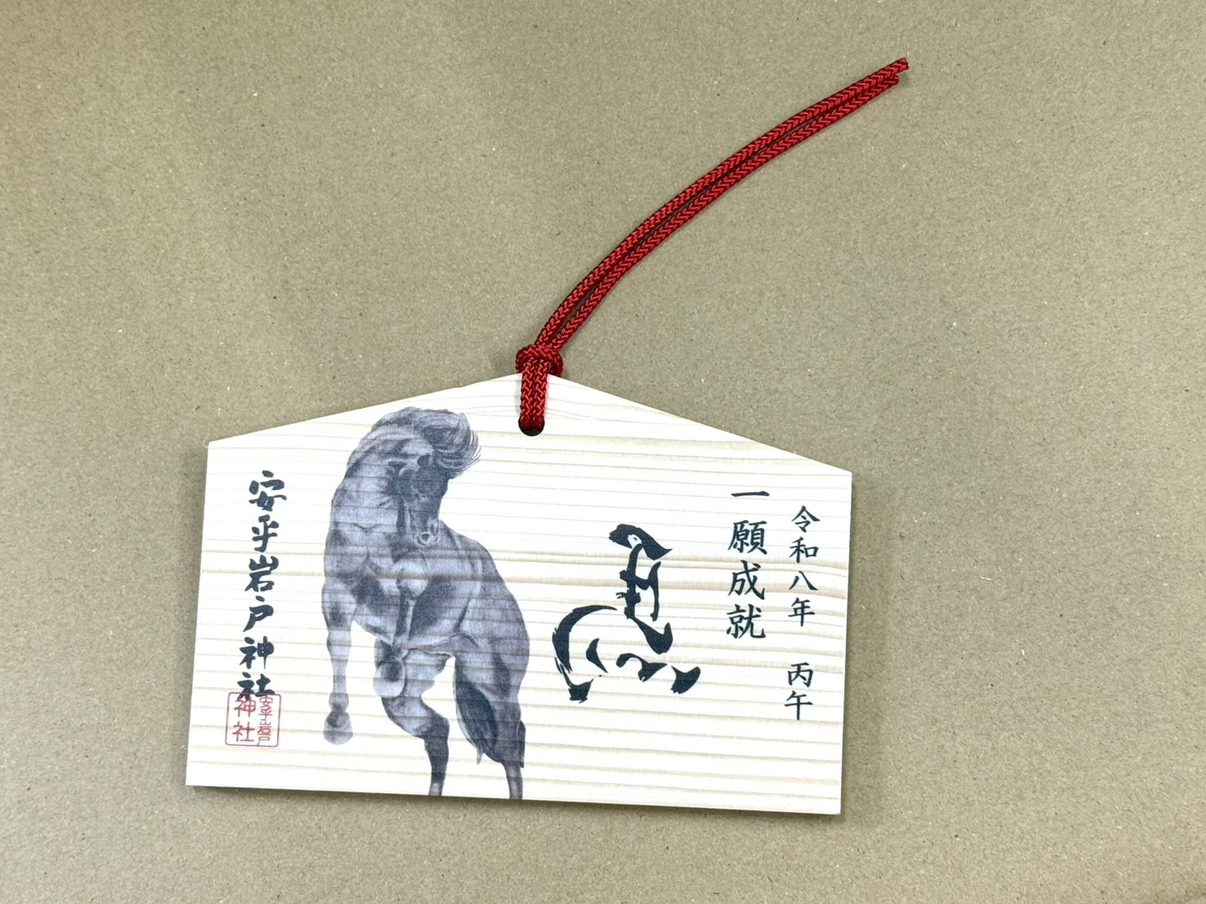 令和八年　丙午
一願成就
馬
安乎岩戸神社
安乎岩戸
神社